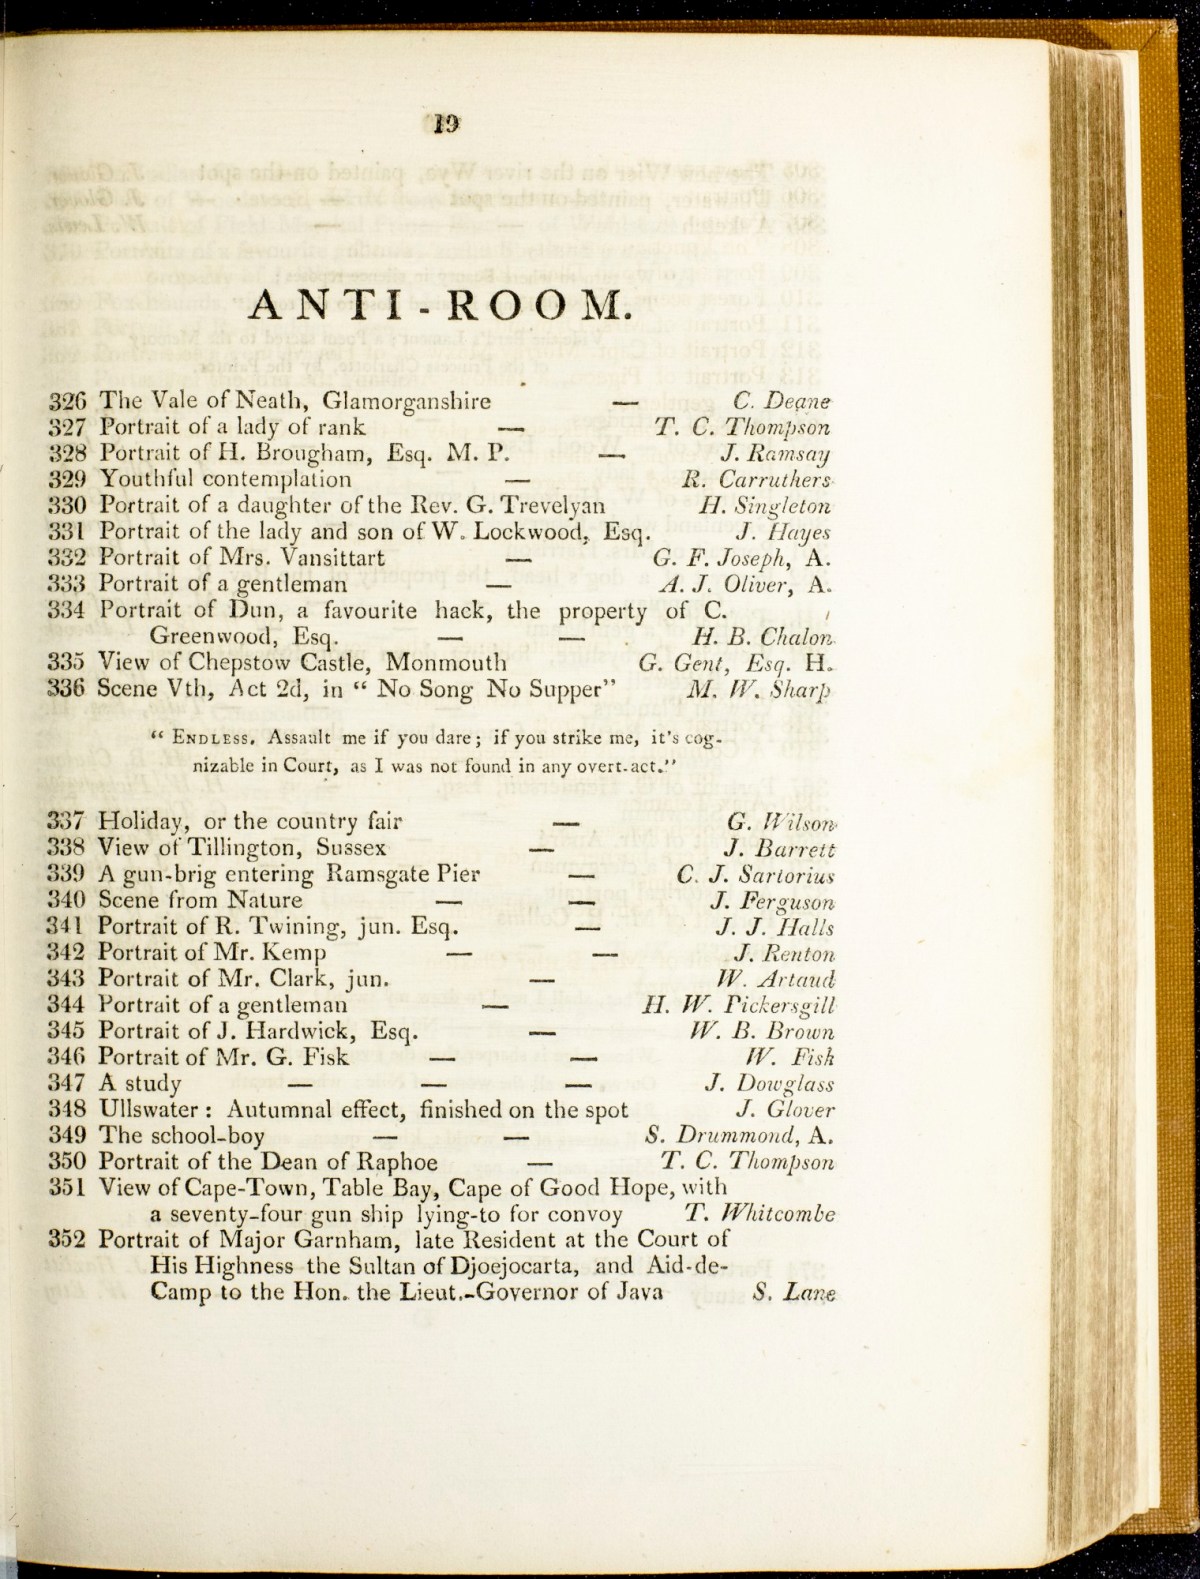 19
ANTI-ROOM.
326 The Vale of Neath, Glamorganshire — C. Deane
327 Portrait of a lady of rank — T. C. Thompson
328 Portrait of H. Brougham, Esq. M. P. — J. Ramsay
329 Youthful contemplation — R. Carruthers
330 Portrait of a daughter of the Rev. G. Trevelyan H. Singleton
331 Portrait of the lady and son of W. Lockwood, Esq. J. Hayes
332 Portrait of Mrs. Vansittart — G. F. Joseph, A.
333 Portrait of a gentleman — A. J. Oliver, A.
334 Portrait of Dun, a favourite hack, the property of C.
Greenwood, Esq. — — H. B. Chalon
335 View of Chepstow Castle, Monmouth G. Gent, Esq. H.
336 Scene Vth, Act 2d, in “ No Song No Supper” M. W. Sharp
“ ENDLESS. Assault me if you dare; if you strike me, it's cog-
nizable in Court, as I was not found in any overt-act.”
337 Holiday, or the country fair — G. Wilson
338 View of Tillington, Sussex — J. Barrett
339 A gun-brig entering Ramsgate Pier — C. J. Sartorius
340 Scene from Nature — — J. Ferguson
341 Portrait of R. Twining, jun. Esq. — J. J. Halls
342 Portrait of Mr. Kemp — — J. Renton
343 Portrait of Mr. Clark, jun. — W. Artaud
344 Portrait of a gentleman — H. W. Pickersgill
345 Portrait of J. Hardwick, Esq. — W. B. Brown
346 Portrait of Mr. G. Fisk — — W. Fisk
347 A study — — — J. Dowglass
348 Ullswater : Autumnal effect, finished on the spot J. Glover
349 The school-boy — — S. Drummond, A.
350 Portrait of the Dean of Raphoe — T. C. Thompson
351 View of Cape-Town, Table Bay, Cape of Good Hope, with
a seventy-four gun ship lying-to for convoy T. Whitcombe
352 Portrait of Major Garnham, late Resident at the Court of
His Highness the Sultan of Djoejocarta, and Aid-de-
Camp to the Hon. the Lieut.-Governor of Java S. Lane